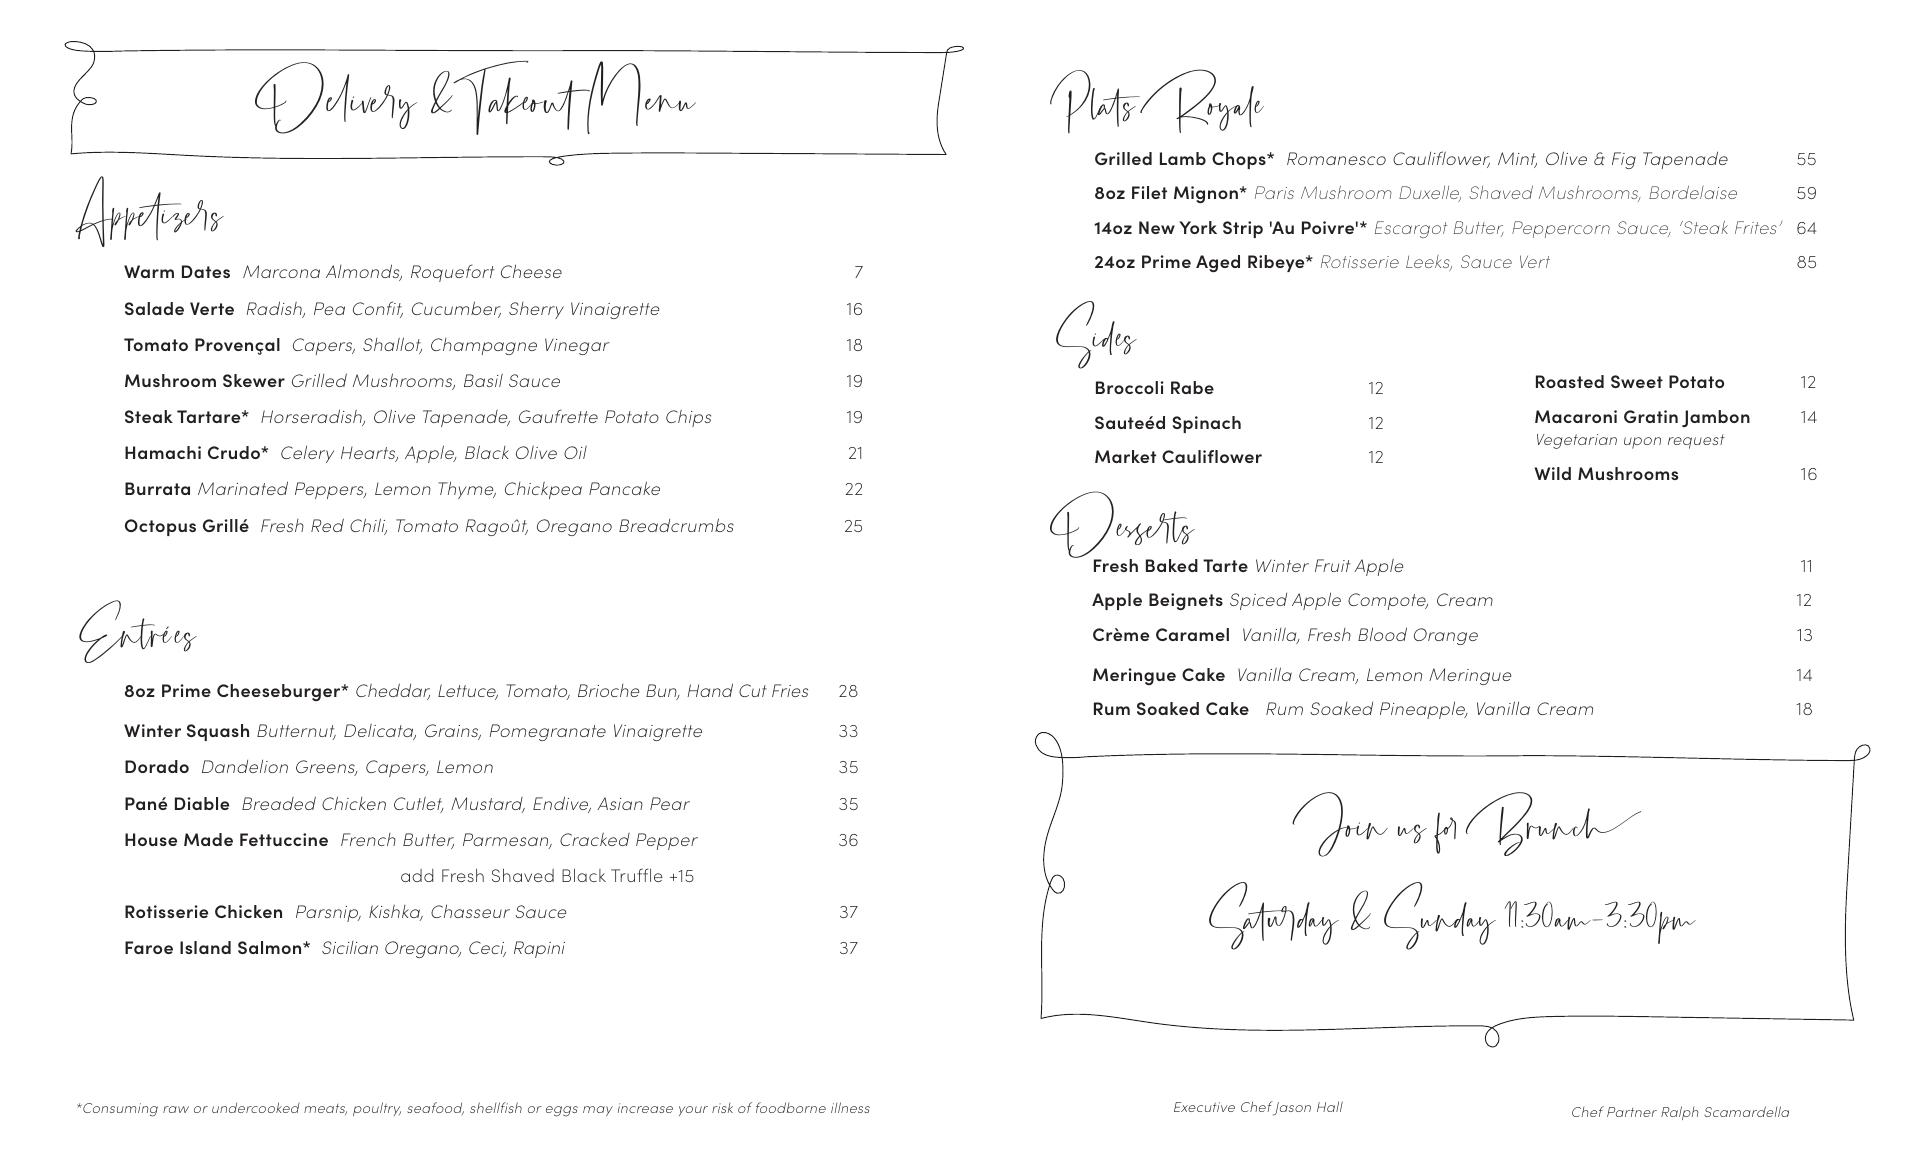 Delivery & Takeout Menu
Appetizers
Warm Dates Marcona Almonds, Roquefort Cheese 7
Salade Verte Radish, Pea Confit, Cucumber, Sherry Vinaigrette 16
Tomato Provençal Capers, Shallot, Champagne Vinegar 18
Mushroom Skewer Grilled Mushrooms, Basil Sauce 19
Steak Tartare* Horseradish, Olive Tapenade, Gaufrette Potato Chips 19
Hamachi Crudo* Celery Hearts, Apple, Black Olive Oil 21
Burrata Marinated Peppers, Lemon Thyme, Chickpea Pancake 22
Octopus Grillé Fresh Red Chili, Tomato Ragoût, Oregano Breadcrumbs 25
Entrées
8oz Prime Cheeseburger* Cheddar, Lettuce, Tomato, Brioche Bun, Hand Cut Fries 28
Winter Squash Butternut, Delicata, Grains, Pomegranate Vinaigrette 33
Dorado Dandelion Greens, Capers, Lemon 35
Pané Diable Breaded Chicken Cutlet, Mustard, Endive, Asian Pear 35
House Made Fettuccine French Butter, Parmesan, Cracked Pepper 36
add Fresh Shaved Black Truffle +15
Rotisserie Chicken Parsnip, Kishka, Chasseur Sauce 37
Faroe Island Salmon* Sicilian Oregano, Ceci, Rapini 37
*Consuming raw or undercooked meats, poultry, seafood, shellfish or eggs may increase your risk of foodborne illness
Plats Royale
Grilled Lamb Chops* Romanesco Cauliflower, Mint, Olive & Fig Tapenade 55
8oz Filet Mignon* Paris Mushroom Duxelle, Shaved Mushrooms, Bordelaise 59
14oz New York Strip 'Au Poivre'* Escargot Butter, Peppercorn Sauce, 'Steak Frites' 64
24oz Prime Aged Ribeye* Rotisserie Leeks, Sauce Vert 85
Sides
Broccoli Rabe 12
Sauteéd Spinach 12
Market Cauliflower 12
Roasted Sweet Potato 12
Macaroni Gratin Jambon 14
Vegetarian upon request
Wild Mushrooms 16
Desserts
Fresh Baked Tarte Winter Fruit Apple 11
Apple Beignets Spiced Apple Compote, Cream 12
Crème Caramel Vanilla, Fresh Blood Orange 13
Meringue Cake Vanilla Cream, Lemon Meringue 14
Rum Soaked Cake Rum Soaked Pineapple, Vanilla Cream 18
Join us for Brunch
Saturday & Sunday 11:30am-3:30pm
Executive Chef Jason Hall
Chef Partner Ralph Scamardella